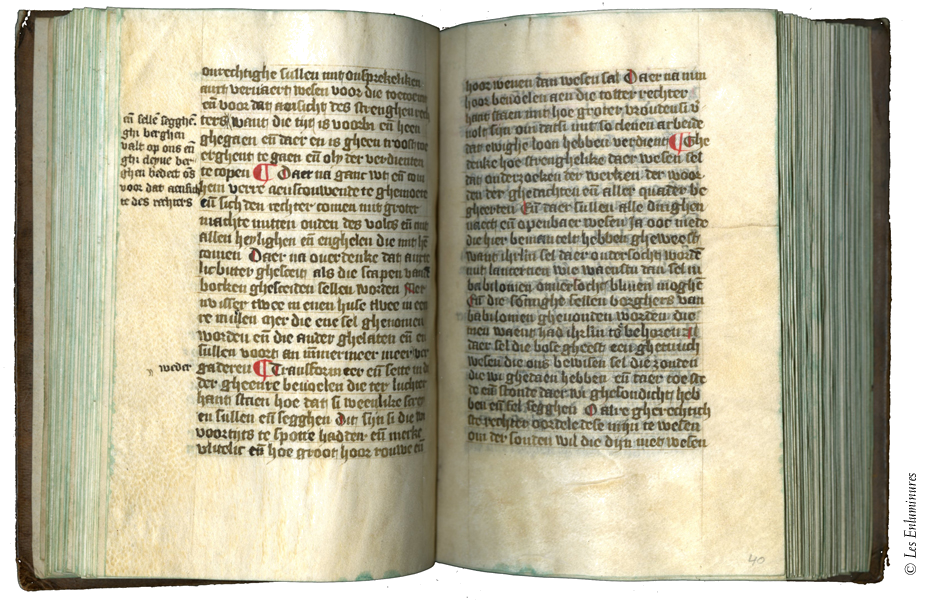 onrechtighe sullen mit onsprekeliken
anxt vervaert wesen voor die toecomē
eñ voor dat aensicht des strenghen rech
ters want die tijt is voorbi eñ heen
ghegaen eñ daer en is gheen troost noe
erghent te gaen eñ oly der verdienten
te copen Daer na gaet wt eñ com
hem verre aenscouwende te ghemoete
eñ sich den rechter comen mit groter
machte mitten ouden des volcs eñ mit
allen heylighen eñ enghelen die mit hē
comen Daer na overdenke dat anxte
lic bitter ghesceit als die scapen vandē
bocken ghesceiden sellen worden Mer
wisser twee in enen huse twee in een
re mulen mer die ene sel ghenomen
worden eñ die ander ghelaten eñ en
sullen voort an ūmermeer meer ver
gaderen Transformeer eñ sette in di
der gheenre bevoelen die ter luchter
hant staen hoe dat si weenlike screy
en sullen eñ segghen Dit sijn si die wi
voortijts te spotte hadden eñ merke
vlitelic eñ hoe groot hoor rouwe eñ
eñ selle segghē
ghi berghen
valt op ons eñ
ghi deyne ber
ghen bedect ōs
voor dat aensich
te des rechters
weder
hoor wenen dan wesen sal Daer na nim
hoor bevoelen aen die totter rechter
hant staen mit hoe groter vrouden si v
volt sijn om datsi mit so clenen arbeide
dat ewighe loon hebben verdient Ghe
denke hoe strenghelike daer wesen sel
dat onderzoeken der werken der woor
den der ghedachten eñ alre quader be
gheerten Eñ daer sullen alle dinghen
naect eñ openbaer wesen ja ooc mede
die hier bemantelt hebben gheweest
want ihrlm sel daer ondersocht wordē
mit lanternen wie waenstu dan sel in
babilonien ondersocht bliven moghē
Eñ die sōmighe sellen berghers van
babilonien ghevonden worden die
men waent had ihrlm to behoren Al
daer sel die bose gheest een ghetuuch
wesen die ons bewisen sel die zonden
die wi ghedaen hebben eñ daer toe ste
de eñ stonde daer wi ghesondicht heb
ben eñ sel segghen O alre gherechtich
ste rechter oordele dese mijn te wesen
om der sonden wil die dijn niet wesen
40
© Les Enluminures